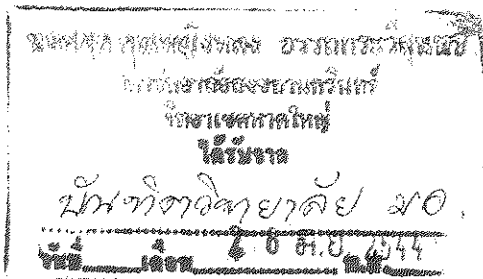 หอสมุดคุณหญิงหลง อรรถกระวีสุนทร
มหาวิทยาลัยสงขลานครินทร์
วิทยาเขตหาดใหญ่
ได้รับจาก
บัณฑิตวิทยาลัย มอ.
วันที่ เดือน 2544